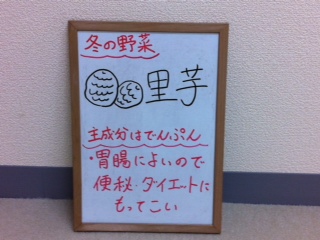 冬の野菜
里芋
主成分はでんぷん
・胃腸によいので
便秘・ダイエットに
もってこい